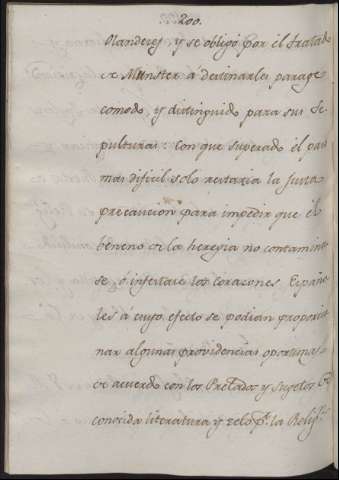 200.
Olandeses y se obligó por el tratado
de Munster á destinarles parage
comodo y distinguido para sus se
pulturas: con que superado el paso
mas dificil solo restaria la justa
precaucion para impedir que el
beneno de la heregia no contamina
se, ó infestase los corazones Españo
les á cuyo efecto se podian proporcio
nar algunas providencias oportunas
de acuerdo con los Prelados y Sugetos de
conocida literatura y zelo p.r la Relig.n